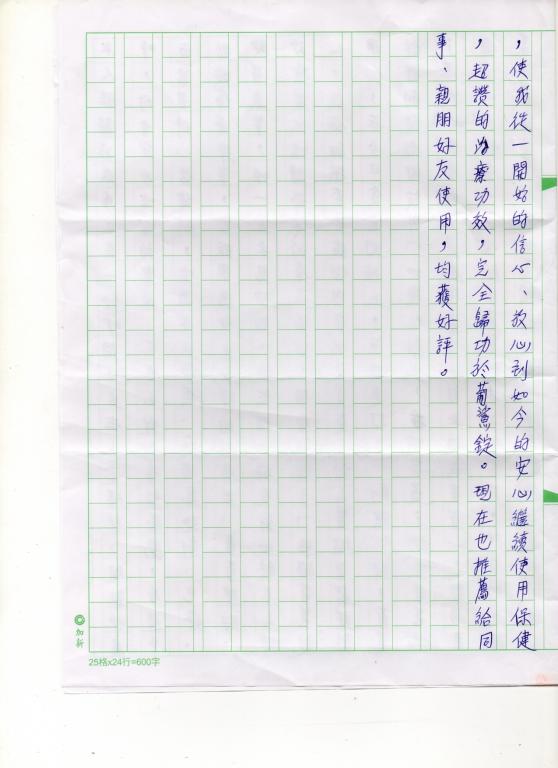 ，使我從一開始的信心、放心到如今的安心繼續使用保健
，超讚的治療功效，完全歸功於葡鯊錠。現在也推薦給同
事、親朋好友使用，均獲好評。
加新
25格x24行=600字